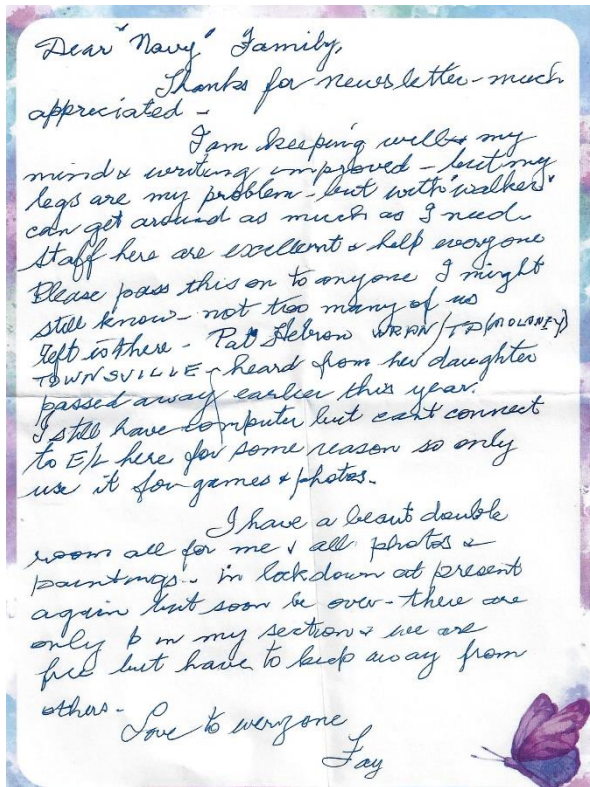 Dear "Navy" Family,
Thanks for newsletter - much
appreciated -
I am keeping well & my
mind & writing improved - but my
legs are my problem - but with "walker"
can get around as much as I need.
Staff here are excellent & help everyone
Please pass this on to anyone I might
still know - not too many of us
left is there - Pat Hebron WRAN/TP (MOLONEY)
TOWNSVILLE - heard from her daughter
passed away earlier this year.
I still have computer but cant connect
to E/L here for some reason so only
use it for games & photos.
I have a beaut double
room all for me & all photos &
paintings. in lockdown at present
again but soon be over - there are
only in my section & we are
free but have to keep away from
others -
Love to everyone
Fay